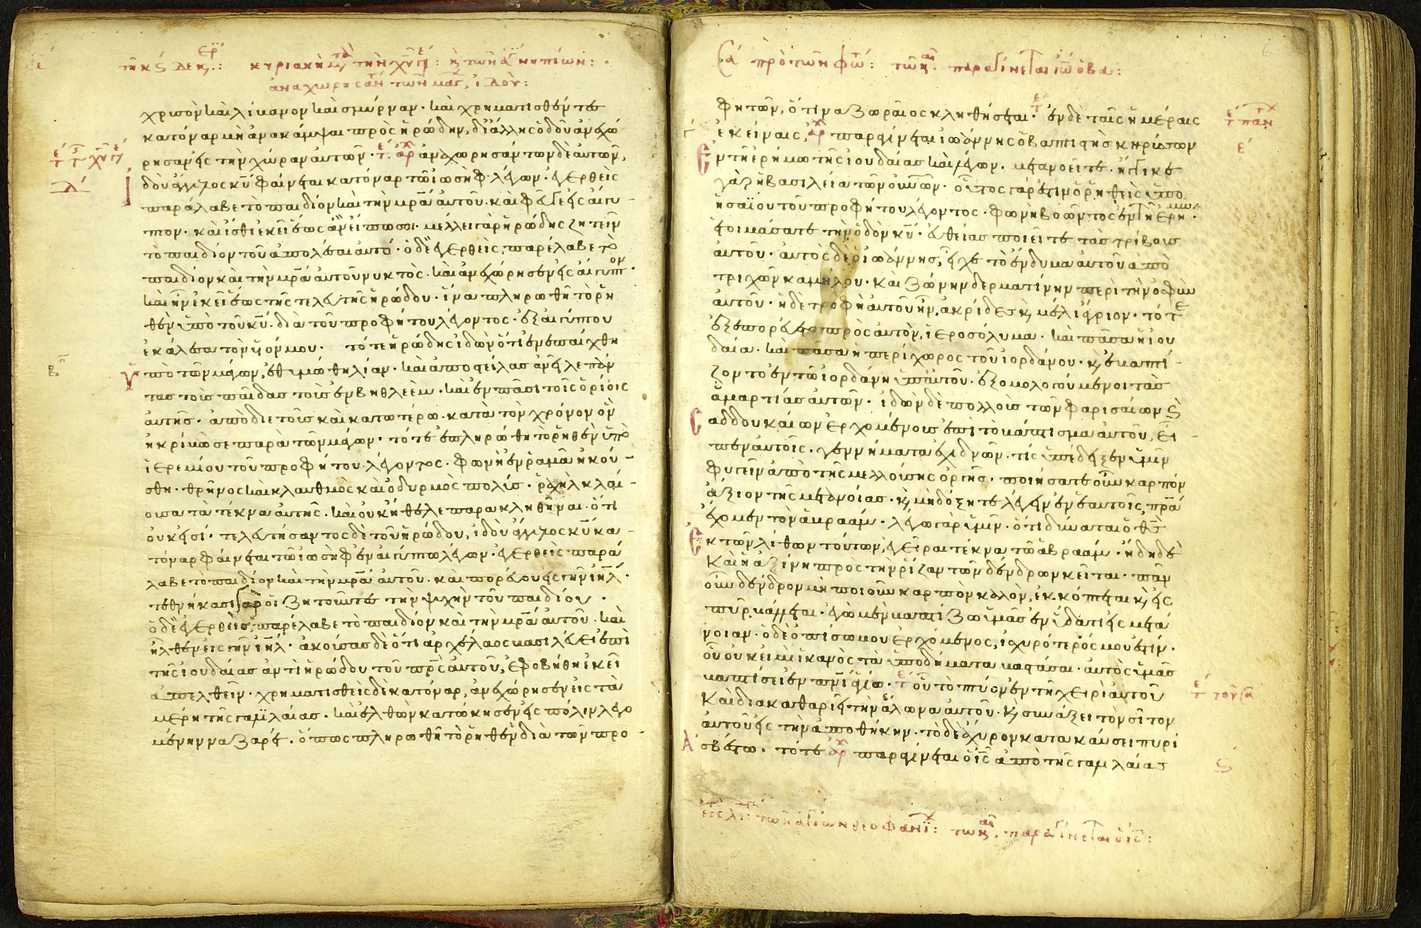 χρυσὸν καὶ λίβανον καὶ σμύρναν · καὶ χρηματισθέντες
κατ' ὄναρ μὴ ἀνακάμψαι πρὸς ἡρώδην, δι' ἄλλης ὁδοῦ ἀνεχώ
ρησαν εἰς τὴν χώραν αὐτῶν · ἀναχωρησάντων δὲ αὐτῶν,
ἰδοὺ ἄγγελος κυ φαίνεται κατ' ὄναρ τῶ ἰωσὴφ λέγων · ἐγερθεὶς
παράλαβε τὸ παιδίον καὶ τὴν μρα αὐτοῦ · καὶ φεῦγε εἰς αἴγυ
πτον · καὶ ἴσθι ἐκεῖ ἕως ἂν εἴπω σοι · μέλλει γὰρ ἡρώδης ζητεῖν
τὸ παιδίον τοῦ ἀπολέσαι αὐτό · ὁ δὲ ἐγερθεὶς, παρέλαβε τὸ
παιδίον καὶ τὴν μρα αὐτοῦ νυκτὸς · καὶ ἀνεχώρησεν εἰς αἴγυπτον ·
καὶ ἦν ἐκεῖ ἕως τῆς τελευτῆς ἡρώδου · ἵνα πληρωθῆ τὸ ῥη
θὲν ὑπὸ τοῦ κυ · διὰ τοῦ προφήτου λέγοντος · ἐξ αἰγύπτου
ἐκάλεσα τὸν υἱόν μου · τότε ἡρώδης ἰδὼν ὅτι ἐνεπαίχθη
ὑπὸ τῶν μάγων, ἐθυμώθη λίαν · καὶ ἀποστείλας ἀνεῖλε πάν
τας τοὺς παῖδας τοὺς ἐν βηθλεὲμ · καὶ ἐν πᾶσι τοῖς ὁρίοις
αὐτῆς · ἀπὸ διετοῦς καὶ κατωτέρω · κατὰ τὸν χρόνον ὃν
ἠκρίβωσε παρὰ τῶν μάγων · τότε ἐπληρώθη τὸ ῥηθὲν ὑπὸ
ἱερεμίου τοῦ προφήτου λέγοντος · φωνὴ ἐν ῥαμᾶ ἠκού
σθη · θρῆνος καὶ κλαυθμὸς καὶ ὀδυρμὸς πολύς · ῥαχὴλ κλαί
ουσα τὰ τέκνα αὐτῆς · καὶ οὐκ ἤθελε παρακληθῆναι · ὅτι
οὐκ εἰσί · τελευτήσαντος δὲ τοῦ ἡρώδου, ἰδοὺ ἄγγελος κυ κα
τ' ὄναρ φαίνεται τῶ ἰωσὴφ ἐν αἰγύπτω λέγων · ἐγερθεὶς παρά
λαβε τὸ παιδίον καὶ τὴν μρα αὐτοῦ · καὶ πορεύου εἰς γῆν ιηλ ·
τεθνήκασι γὰρ οἱ ζητοῦντες τὴν ψυχὴν τοῦ παιδίου ·
ὁ δὲ ἐγερθεὶς, παρέλαβε τὸ παιδίον καὶ τὴν μρα αὐτοῦ · καὶ
ἦλθεν εἰς γῆν ιηλ · ἀκούσας δὲ ὅτι ἀρχέλαος βασιλεύει ἐπὶ
τῆς ἰουδαίας ἀντὶ ἡρώδου τοῦ πρς αὐτοῦ, ἐφοβήθη ἐκεῖ
ἀπελθεῖν · χρηματισθεὶς δὲ κατ' ὄναρ, ἀνεχώρησεν εἰς τὰ
μέρη τῆς γαλιλαίας · καὶ ἐλθὼν κατώκησεν εἰς πόλιν λεγο
μένην ναζαρέτ · ὅπως πληρωθῆ τὸ ῥηθὲν διὰ τῶν προ
φητῶν, ὅτι ναζωραῖος κληθήσεται · ἐν δὲ ταῖς ἡμέραις
ἐκείναις, παραγίνεται ἰωάννης ὁ βαπτιστὴς κηρύσσων
ἐν τῆ ἐρήμω τῆς ἰουδαίας καὶ λέγων · μετανοεῖτε · ἤγγικε
γὰρ ἡ βασιλεία τῶν οὐνῶν · οὗτος γάρ ἐστιν ὁ ῥηθεὶς ὑπὸ
ἡσαΐου τοῦ προφήτου λέγοντος · φωνὴ βοῶντος ἐν τῆ ἐρήμω ·
ἑτοιμάσατε τὴν ὁδὸν κυ · εὐθείας ποιεῖτε τὰς τρίβους
αὐτοῦ · αὐτὸς δὲ ὁ ἰωάννης, εἶχε τὸ ἔνδυμα αὐτοῦ ἀπὸ
τριχῶν καμήλου · καὶ ζώνην δερματίνην περὶ τὴν ὀσφὺν
αὐτοῦ · ἡ δὲ τροφὴ αὐτοῦ ἦν, ἀκρίδες κ μέλι ἄγριον · τότε
ἐξεπορεύετο πρὸς αὐτὸν, ἱεροσόλυμα · καὶ πᾶσα ἡ ἰου
δαία · καὶ πᾶσα ἡ περίχωρος τοῦ ἰορδάνου · κ ἐβαπτί
ζοντο ἐν τῶ ἰορδάνη ὑπ' αὐτοῦ · ἐξομολογούμενοι τὰς
ἁμαρτίας αὐτῶν · ἰδὼν δὲ πολλοὺς τῶν φαρισαίων κ
σαδδουκαίων ἐρχομένους ἐπὶ τὸ βάπτισμα αὐτοῦ, εἶ
πεν αὐτοῖς · γεννήματα ἐχιδνῶν · τίς ὑπέδειξεν ὑμῖν
φυγεῖν ἀπὸ τῆς μελλούσης ὀργῆς · ποιήσατε οὖν καρπὸν
ἄξιον τῆς μετανοίας · κ μὴ δόξητε λέγειν ἐν ἑαυτοῖς, πρα
ἔχομεν τὸν ἀβραάμ · λέγω γὰρ ὑμῖν · ὅτι δύναται ὁ θς
ἐκ τῶν λίθων τούτων, ἐγεῖραι τέκνα τῶ ἀβραάμ · ἤδη δὲ
καὶ ἡ ἀξίνη πρὸς τὴν ῥίζαν τῶν δένδρων κεῖται · πᾶν
οὖν δένδρον μὴ ποιοῦν καρπὸν καλὸν, ἐκκόπτεται κ εἰς
πῦρ βάλλεται · ἐγὼ μὲν βαπτίζω ὑμᾶς ἐν ὕδατι εἰς μετά
νοιαν · ὁ δὲ ὀπίσω μου ἐρχόμενος, ἰσχυρότερός μου ἐστίν ·
οὗ οὐκ εἰμὶ ἱκανὸς τὰ ὑποδήματα βαστάσαι · αὐτὸς ὑμᾶς
βαπτίσει ἐν πνι ἁγίω · οὗ τὸ πτύον ἐν τῆ χειρὶ αὐτοῦ
καὶ διακαθαριεῖ τὴν ἅλωνα αὐτοῦ · κ συνάξει τὸν σῖτον
αὐτοῦ εἰς τὴν ἀποθήκην · τὸ δὲ ἄχυρον κατακαύσει πυρὶ
ἀσβέστω · τότε παραγίνεται ὁ ις ἀπὸ τῆς γαλιλαίας